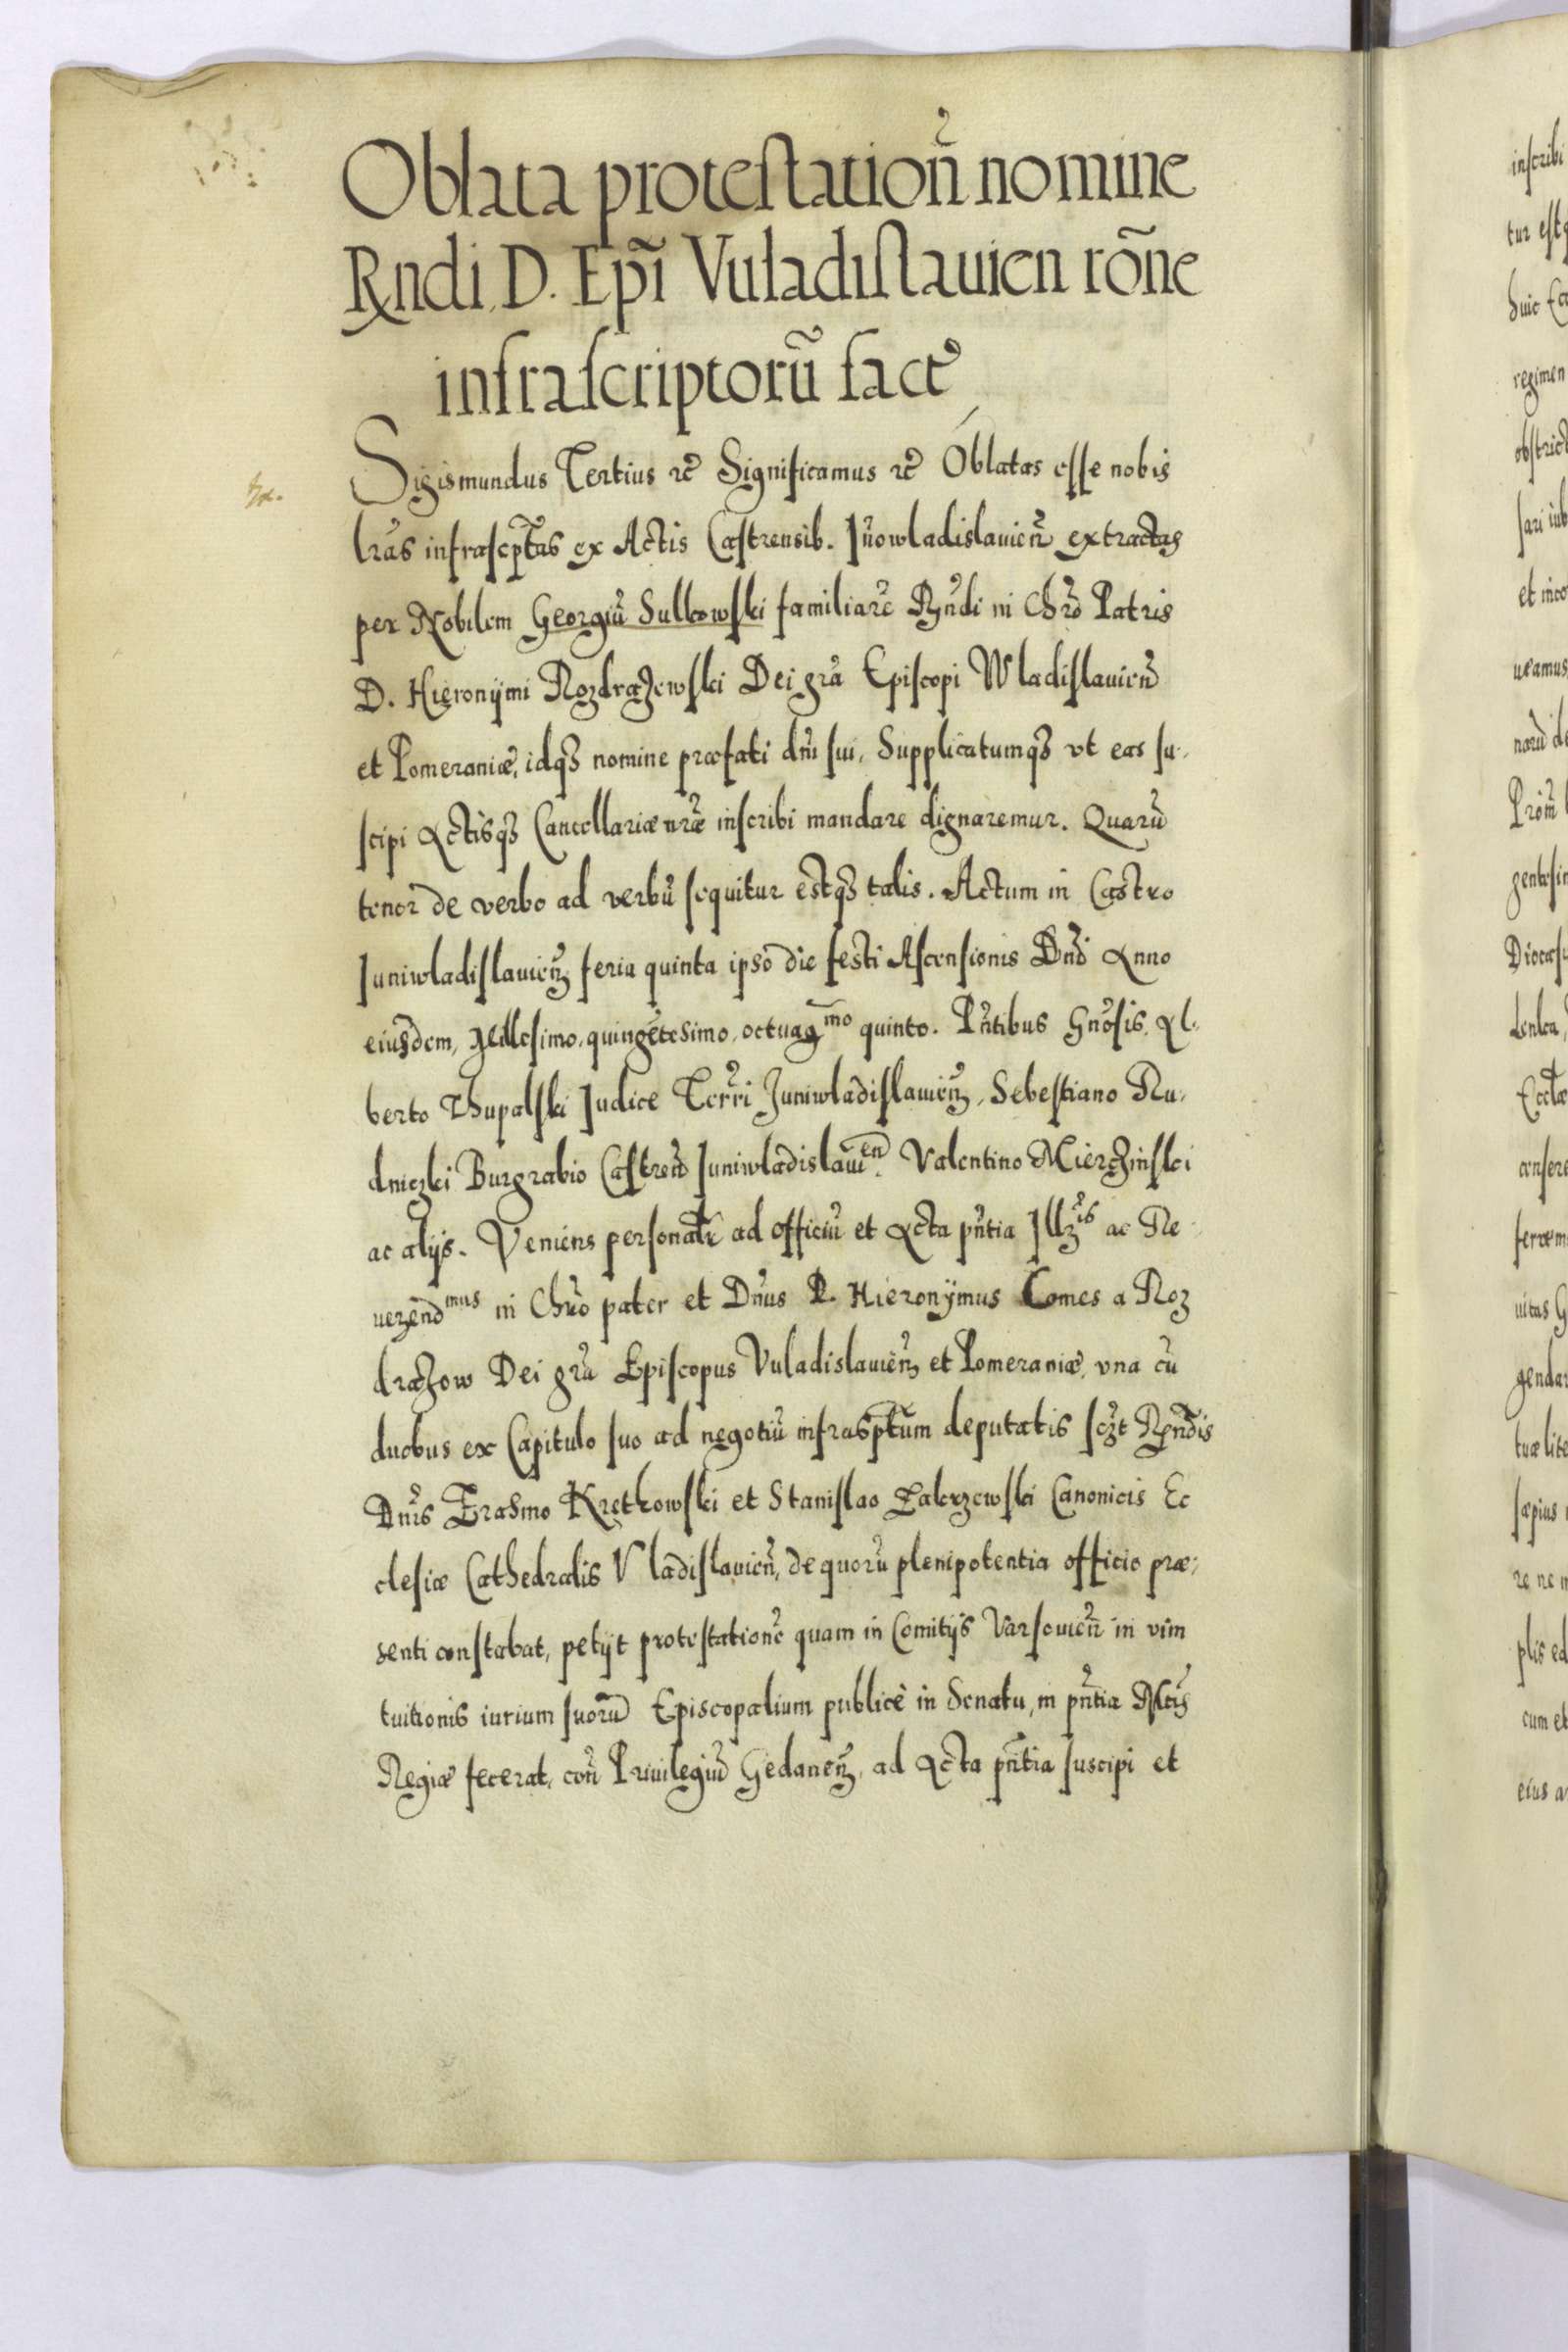 Oblata protestation̄ nomine
Rndi. D. Epĩ Vuladislauien rõne
infrascriptorũ fact̃
Sigismundus Tertius etc̃ Significamus etc̃ Oblatas esse nobis
lrãs infrascptas ex Actis Castrensib. Iñowladislauien̄ extractas
per Nobilem Georgiũ Sulkowski familiarẽ Rñdi in Chrõ Patris
D. Hieronÿmi Rozdrażewski Dei grã Episcopi Wladislauien̄
et Pomeraniæ, idqȝ nomine præfati dñi sui, Supplicatumqȝ vt eas su-
scipi Actisqȝ Cancellariæ nr̃æ inscribi mandare dignaremur. Quarũ
tenor de verbo ad verbũ sequitur estqȝ talis. Actum in Castro
Iuniwladislauien̄ feria quinta ipso die festi Ascensionis Dñi Anno
eiusdem, Millesimo, quingẽtesimo, octuagmo quinto. Pñtibus Gñosis, Al-
berto Thupalski Iudice Terr̃i Iuniwladislauien̄, Sebestiano Ru-
dniczki Burgrabio Castren̄ Iuniwladislauien. Valentino Mierzinski
ac alÿs. Veniens personalr̃ ad officiũ et Acta pñtia Illris ac Re-
uerendmus in Chrõ pater et Dñus D. Hieronÿmus Comes a Roz
drażow Dei grã Episcopus Vuladislauien̄ et Pomeraniæ, vna cũ
duobus ex Capitulo suo ad negotiũ infrasptum deputatis sczt Rndis
Dñis Erasmo Kretkowski et Stanislao Zakrzewski Canonicis Ec
clesiæ Cathedralis Vladislauien̄, de quorũ plenipotentia officio præ-
senti constabat, petÿt protestationẽ quam in Comitÿs Varsouien̄ in vim
tuitionis iurium suorũ Episcopalium publicè in Senatu, in pñtia Mtis
Regiæ fecerat, con̄ Priuilegiũ Gedanen̄, ad Acta pñtia suscipi et
inscribi
huic
regimen
et inco
ueamus